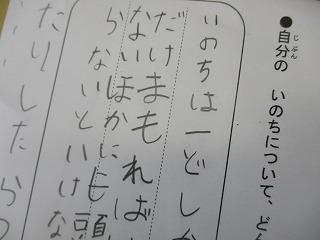 ●自分の いのちについて、ど
じぶん
いのちは一どしか
だけまもれば
ないほかにも頭
らないといけな
たりしたら